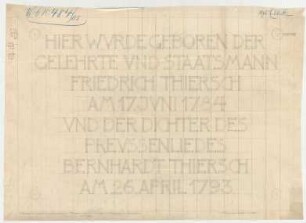 HIER WVRDE GEBOREN DER
GELEHRTE VND STAATSMANN
FRIEDRICH THIERSCH
AM 17. JVNI 1784
VND DER DICHTER DES
PREVSSENLIEDES
BERNHARDT THIERSCH
AM 26. APRIL 1793